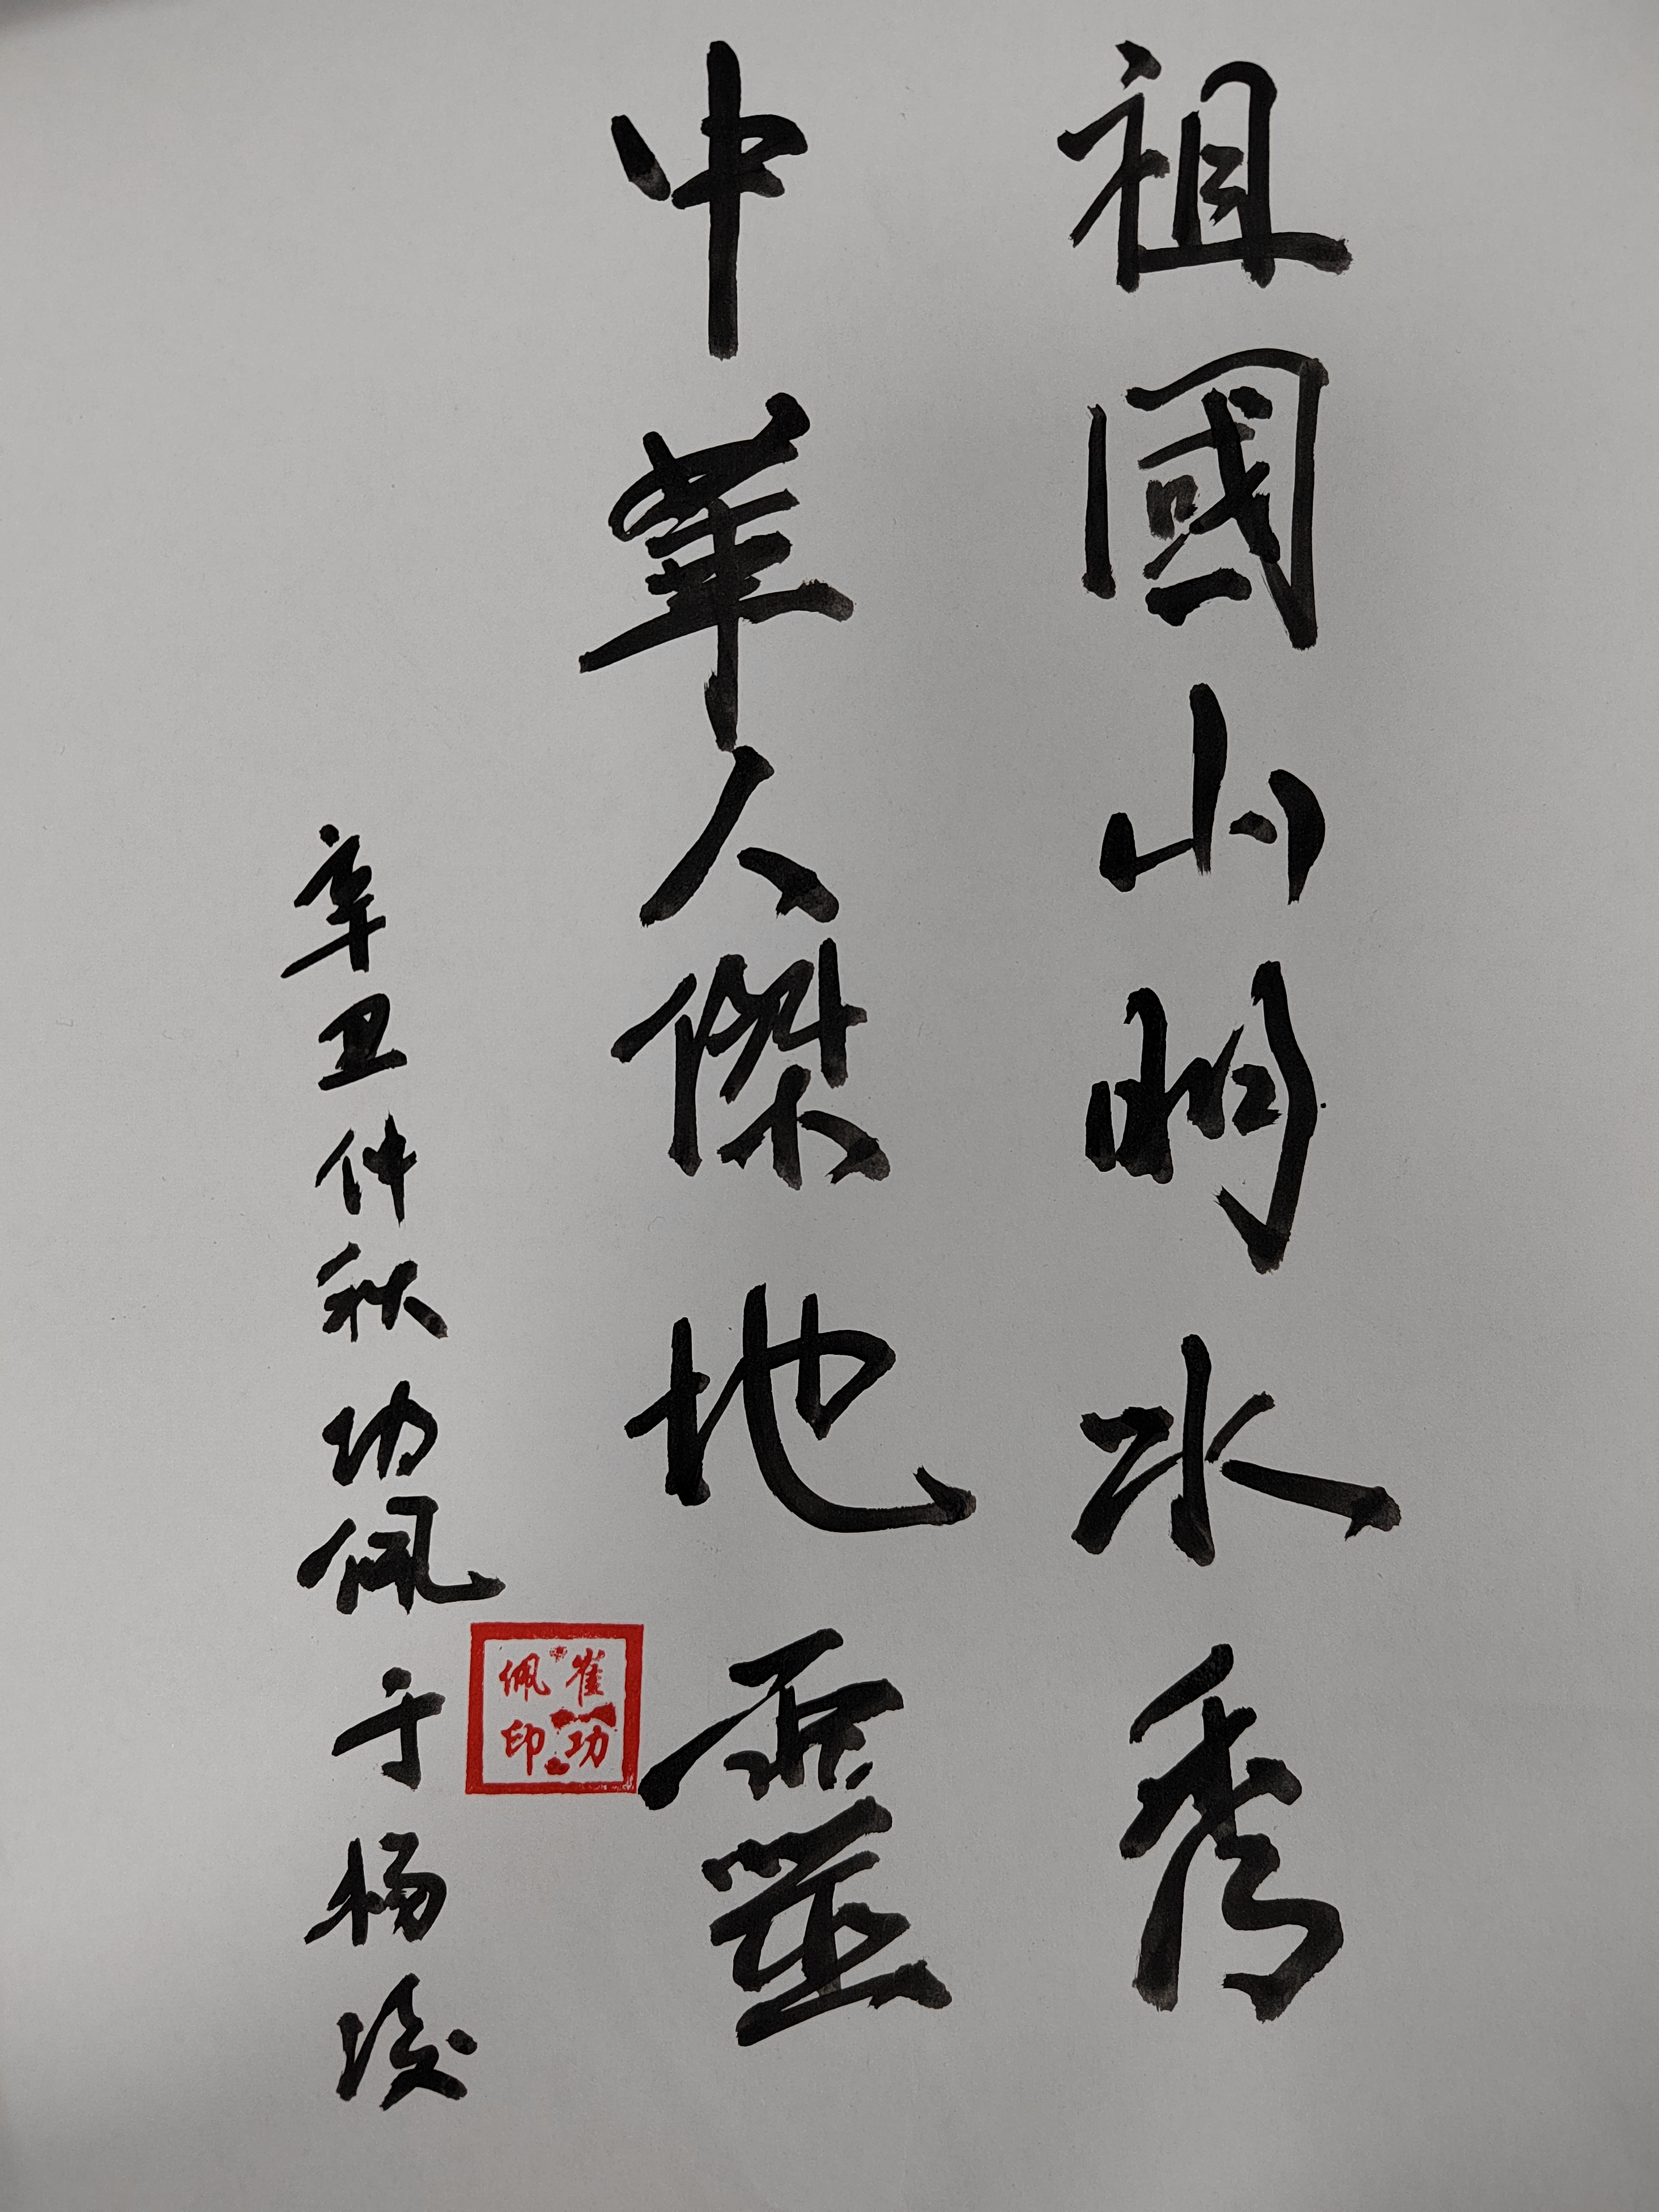 祖國山明水秀
中華人傑地靈
辛丑仲秋功佩于杨凌
崔功佩印